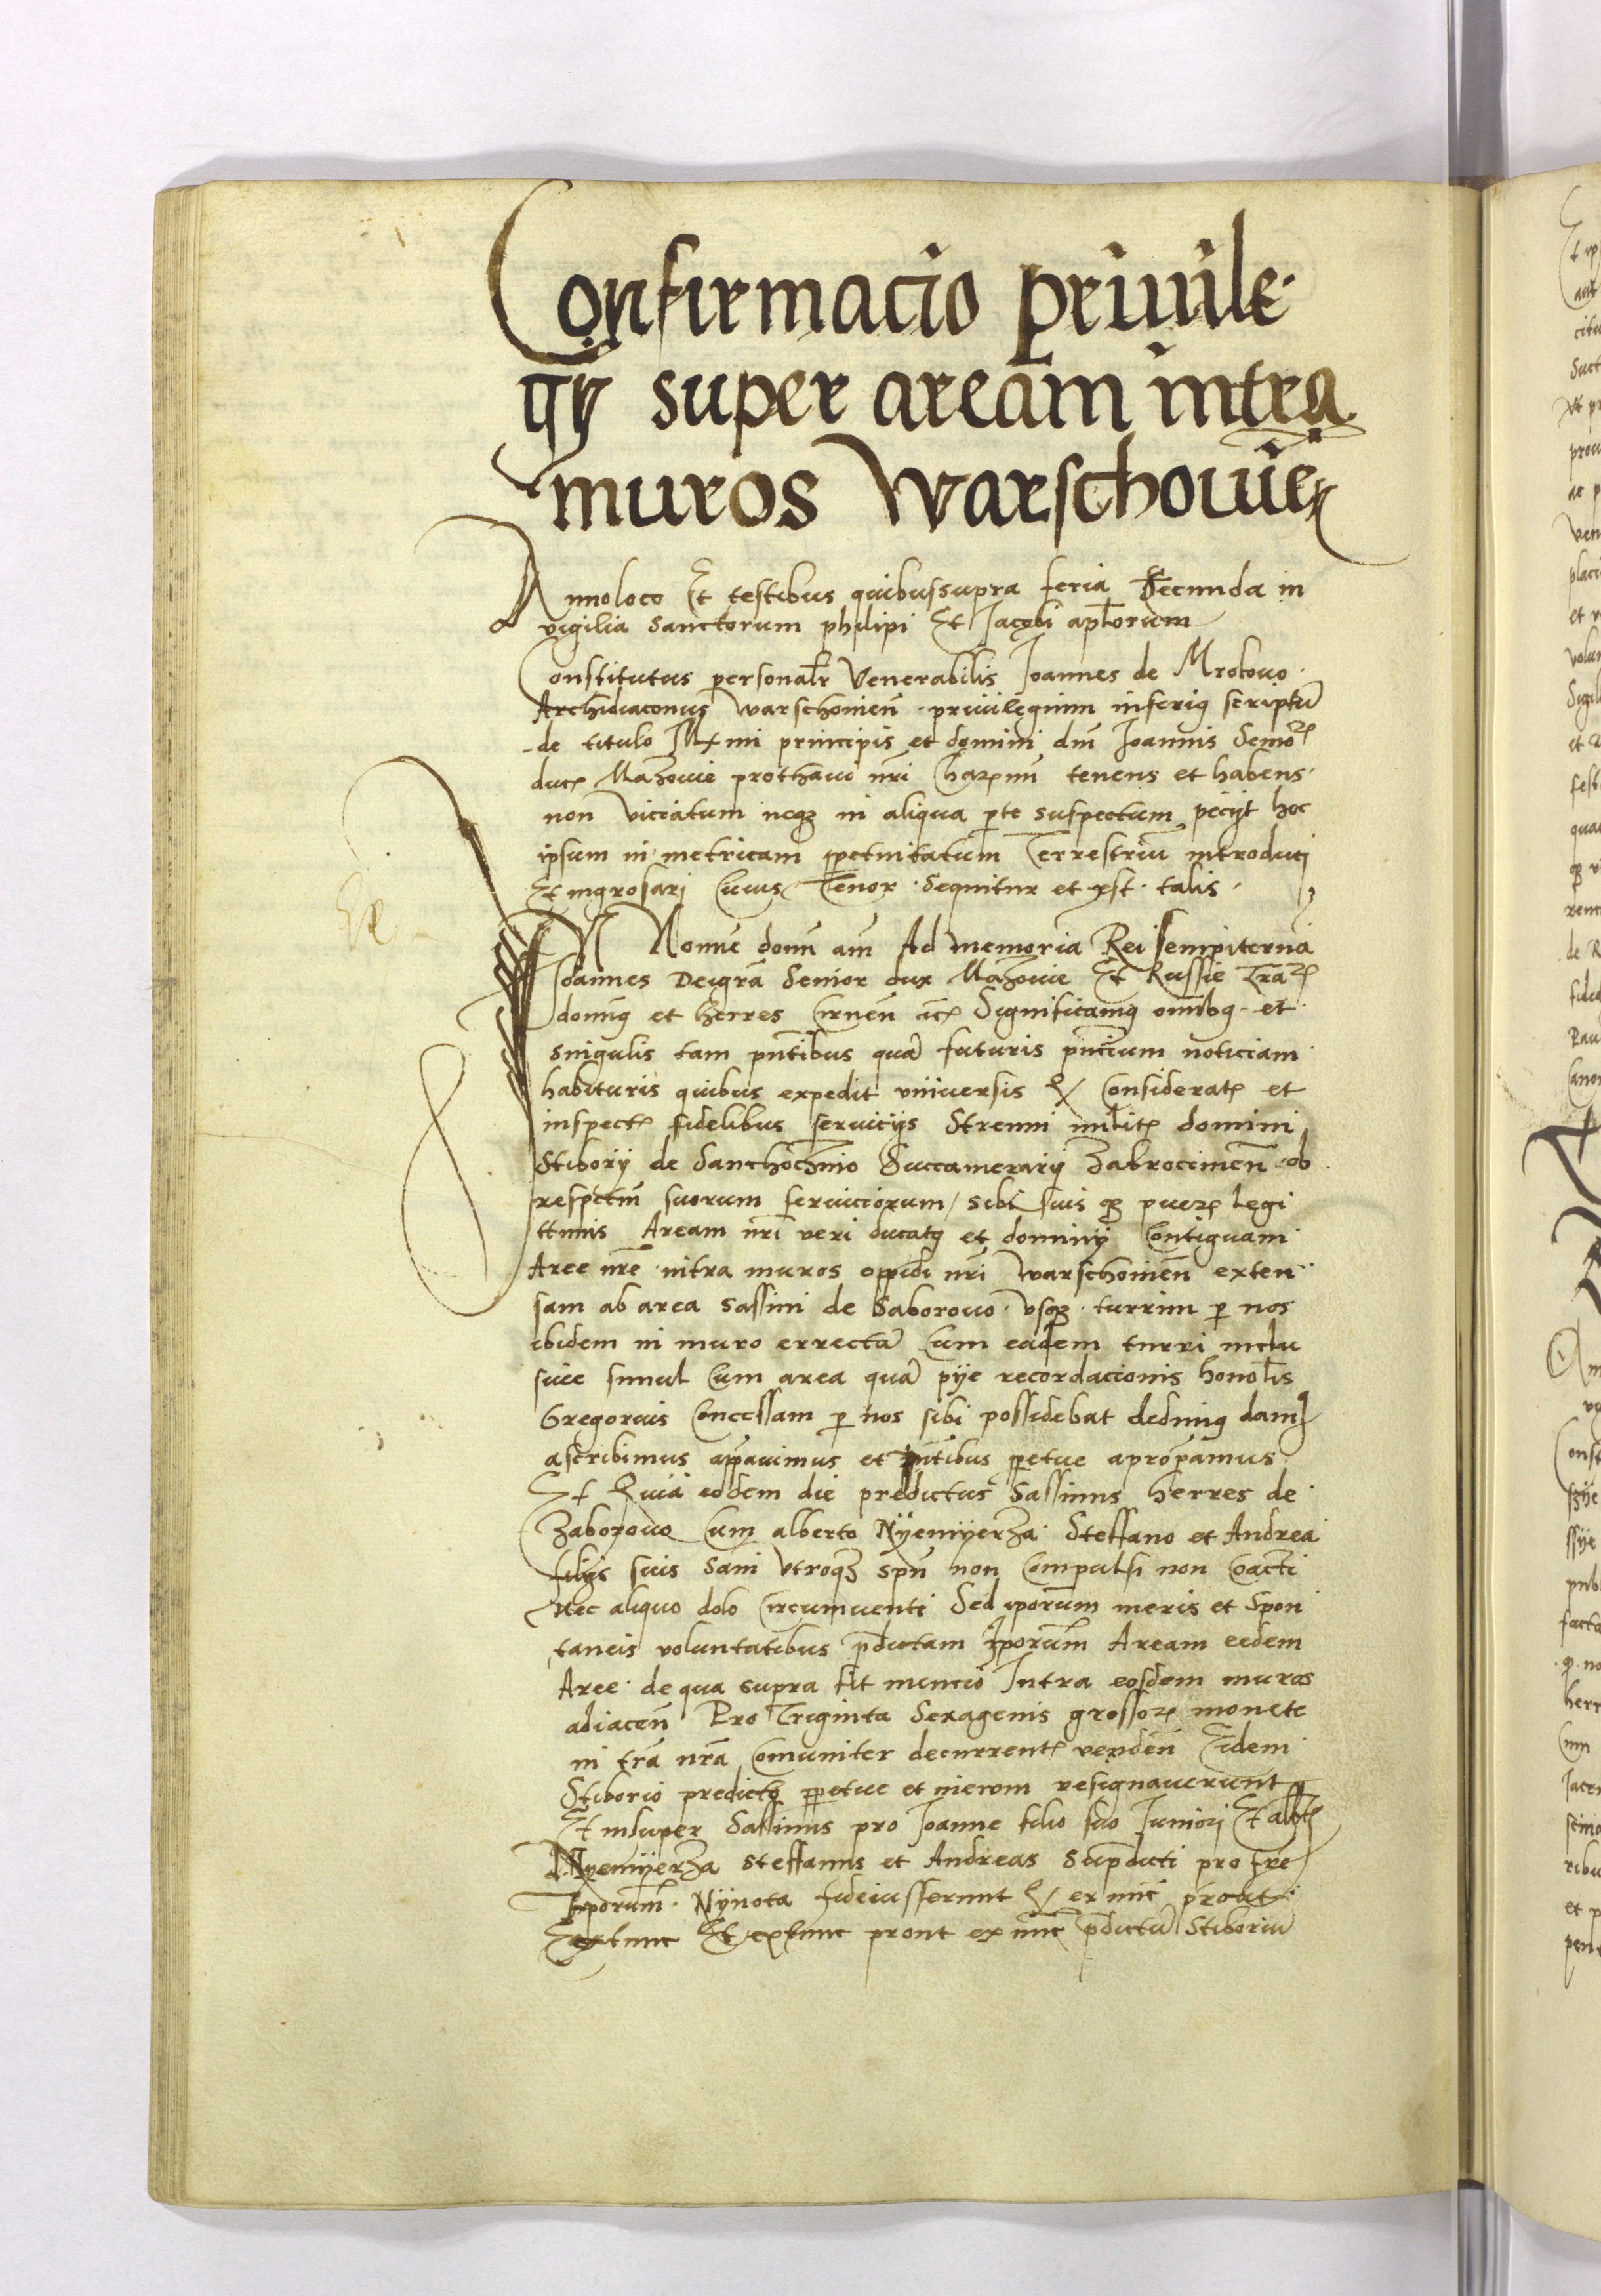 Confirmacio priuile
gÿ super aream intra
muros Warschouie
Anno loco Et testibus quibussupra feria Secunda in
vigilia Sanctorum philipi Et Jacobi apłorum
Constitutus personalr Venerabilis Joannes de Mrokouo
Archidiaconus warschouien̄ priuilegium inferiꝯ scriptū
de titulo principis et domini dni Joannis Senioꝝ
ducꝭ Mazouie prothaui nr̄i tenens et habens
non viciatum neqꝫ in aliqua ꝑte suspectum pecijt hoc
ipsum in metricam ꝑpetuitatum Terrestriū introduci
Et ingrosari Cuius Tenor Sequitur et est talis
IN Nomie domī am̄ Ad memoriā Rei sempiternā
Joannes Dei gra Senior dux Mazouie Et Russie Trāꝝ
domiꝯ et herres Cirnen̄ ac Significamꝯ omibꝯ et
singulis tam pn̄tibus quā futuris pn̄cium noticiam
habituris quibus expedit vniuersis Consideratꝭ et
inspectꝭ fidelibus seruicijs Strenui militꝭ domini
Stiborij de Sanchoczino Succamerarij Zakrocimen̄ ob
respectū suorum seruiciorum sibi suis qꝫ pueꝝ legi
ttimis Aream nr̄i veri ducatꝯ et dominij Contiguam
Aree nr̄e intra muros oppidi nr̄i warschouien̄ exten
sam ab area Sassini de Saborouo vsqꝫ turrim ꝑ nos
ibidem in muro errectā Cum eadem turri inclu
siue simul Cum area quā pije recordacionis honoƚis
Gregorius Concessam ꝑ nos sibi possidebat dedimꝯ damꝯ
ascribimus appauimus et pn̄tibus ꝑpetue apropamus
Et Quia eodem die predictus Sassinus herres de
Zaborouo Cum alberto Nÿemÿerza Steffano et Andrea
filijs suis Sani vtroqꝫ spn̄ non Compulsi non Coacti
Nec aliquo dolo Circumuenti Sed iporum meris et Spon
taneis voluntatibus pdictam Iporum Aream eedem
Aree de qua supra fit mencio Intra eosdem muros
adiacen̄ Pro Triginta Sexagenis grossoꝝ monete
in tra nr̄a Comuniter decurrentꝭ venden̄ Eidem
Stiborio predictꝯ ꝑpetue et in ewm resignauerunt
Et insuper Sassinus pro Joanne filio suo Juniorj Et albtꝯ
Nyemÿerza Steffanus et Andreas Supdicti pro fre
Iporum Nynota fideiusserunt ex nūc prout
Extunc Et extunc prout ex nūc pdictū Stiboriū